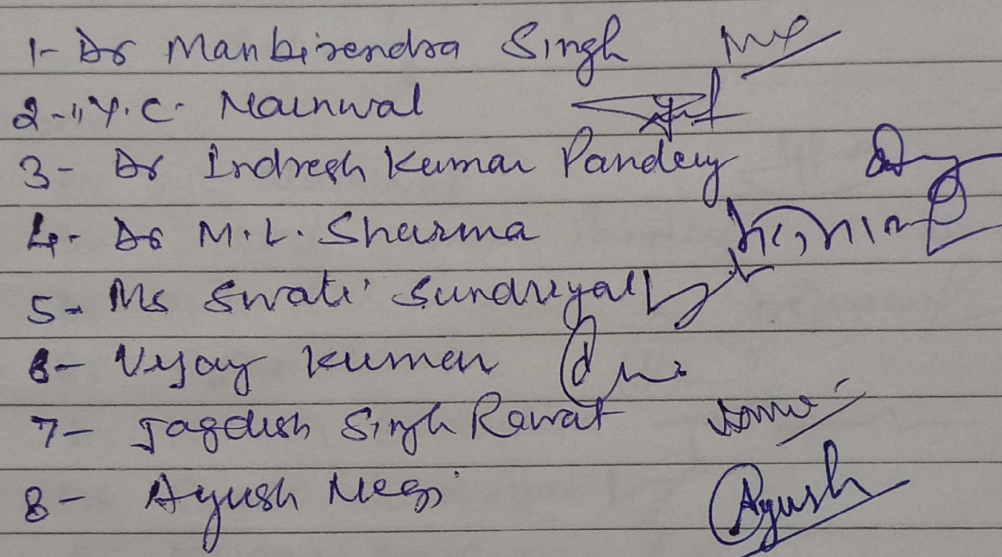 1- Dr Manbirendra Singh
2- " Y.C. Nainwal
3- Dr Indresh Kumar Pandey
4- Dr M.L. Sharma
5- Ms Swati Sundriyal
6- Vijay Kumar
7- Jagdish Singh Rawat
8- Ayush Negi Ayush